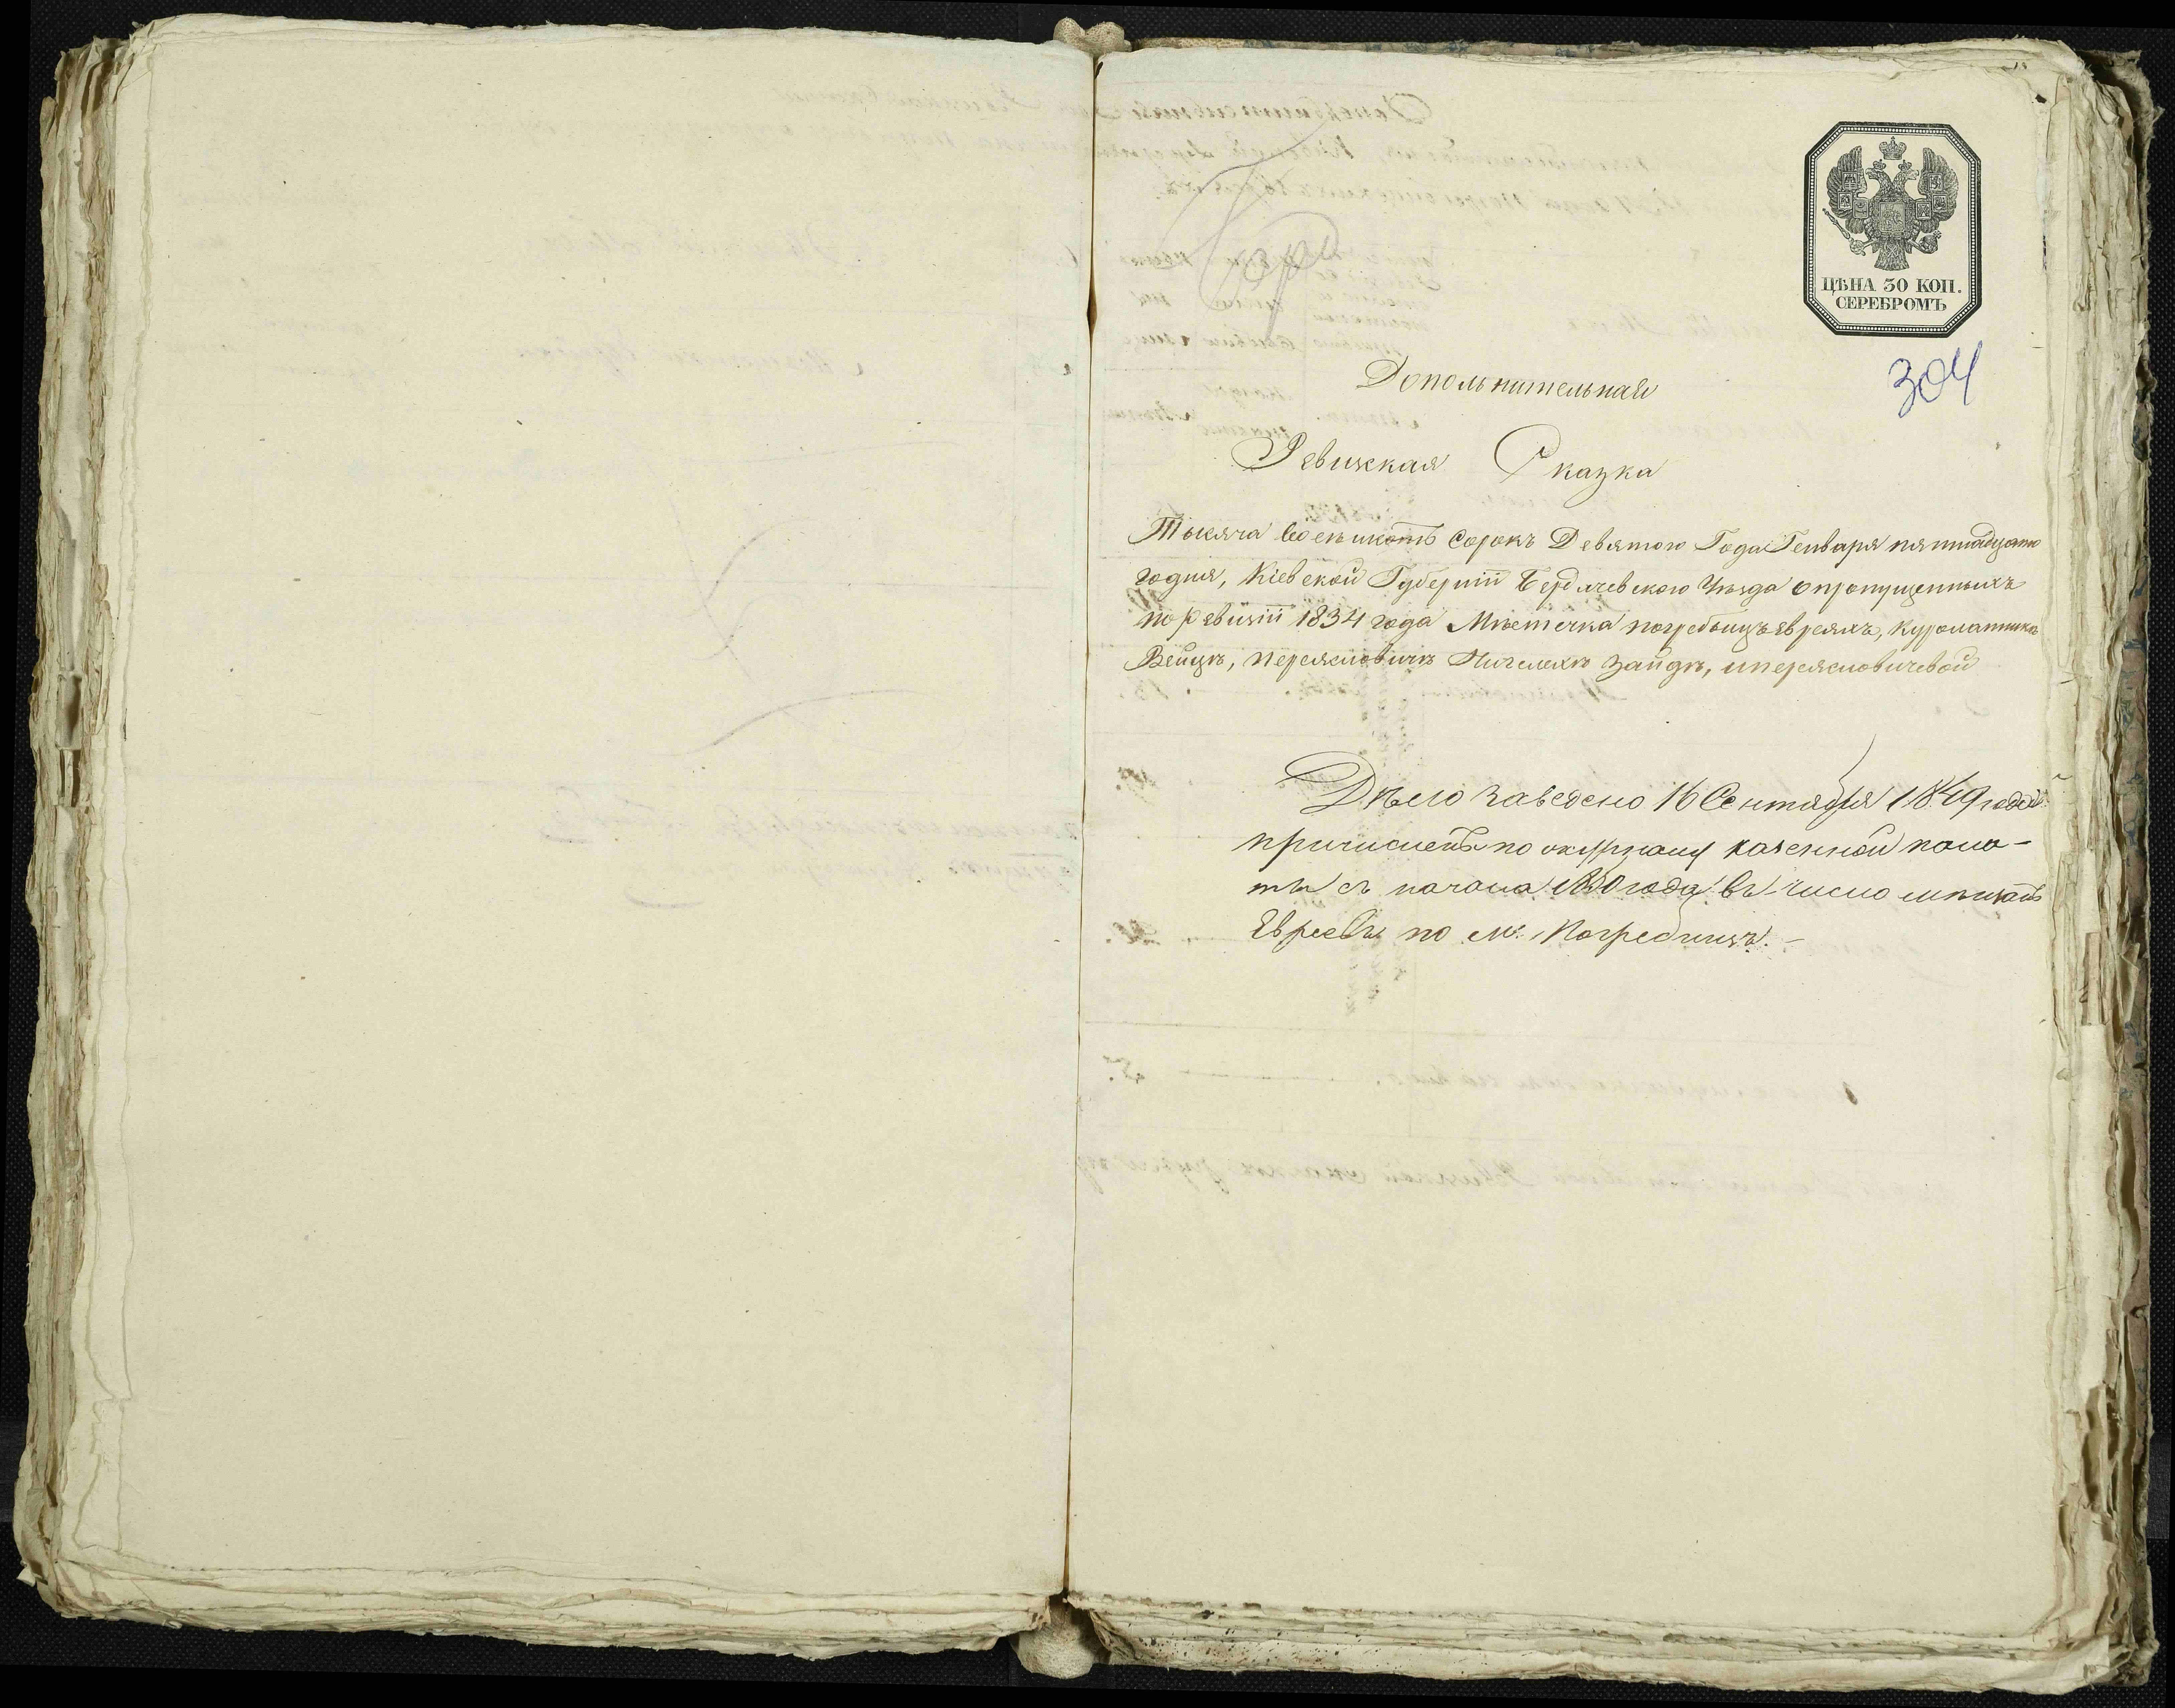 ЦѢНА 30 КОП.
СЕРЕБРОМЪ
304
Дополнительная
Ревизская Сказка
Тысяча Восемьсотъ Сорокъ Девятого Года Генваря пятнадцато
годня, Кіевской Губерніи Бердичевского Уѣзда о пропущенныхъ
по ревизіи 1834 года Мѣстечка погребыщъ евреяхъ,
Вейцѣ, Зайдѣ,
Дѣло заведено 16 Сентября 1849 года
причислены по казенной пала-
ты съ начала 1850 года въ число мѣщанъ
Евреевъ по м. Погребищъ.-